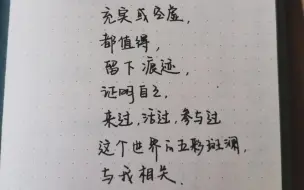 充实或空虚，
都值得，
留下痕迹，
证明自己，
来过，活过，参与过
这个世界的五彩斑斓，
与我相关。